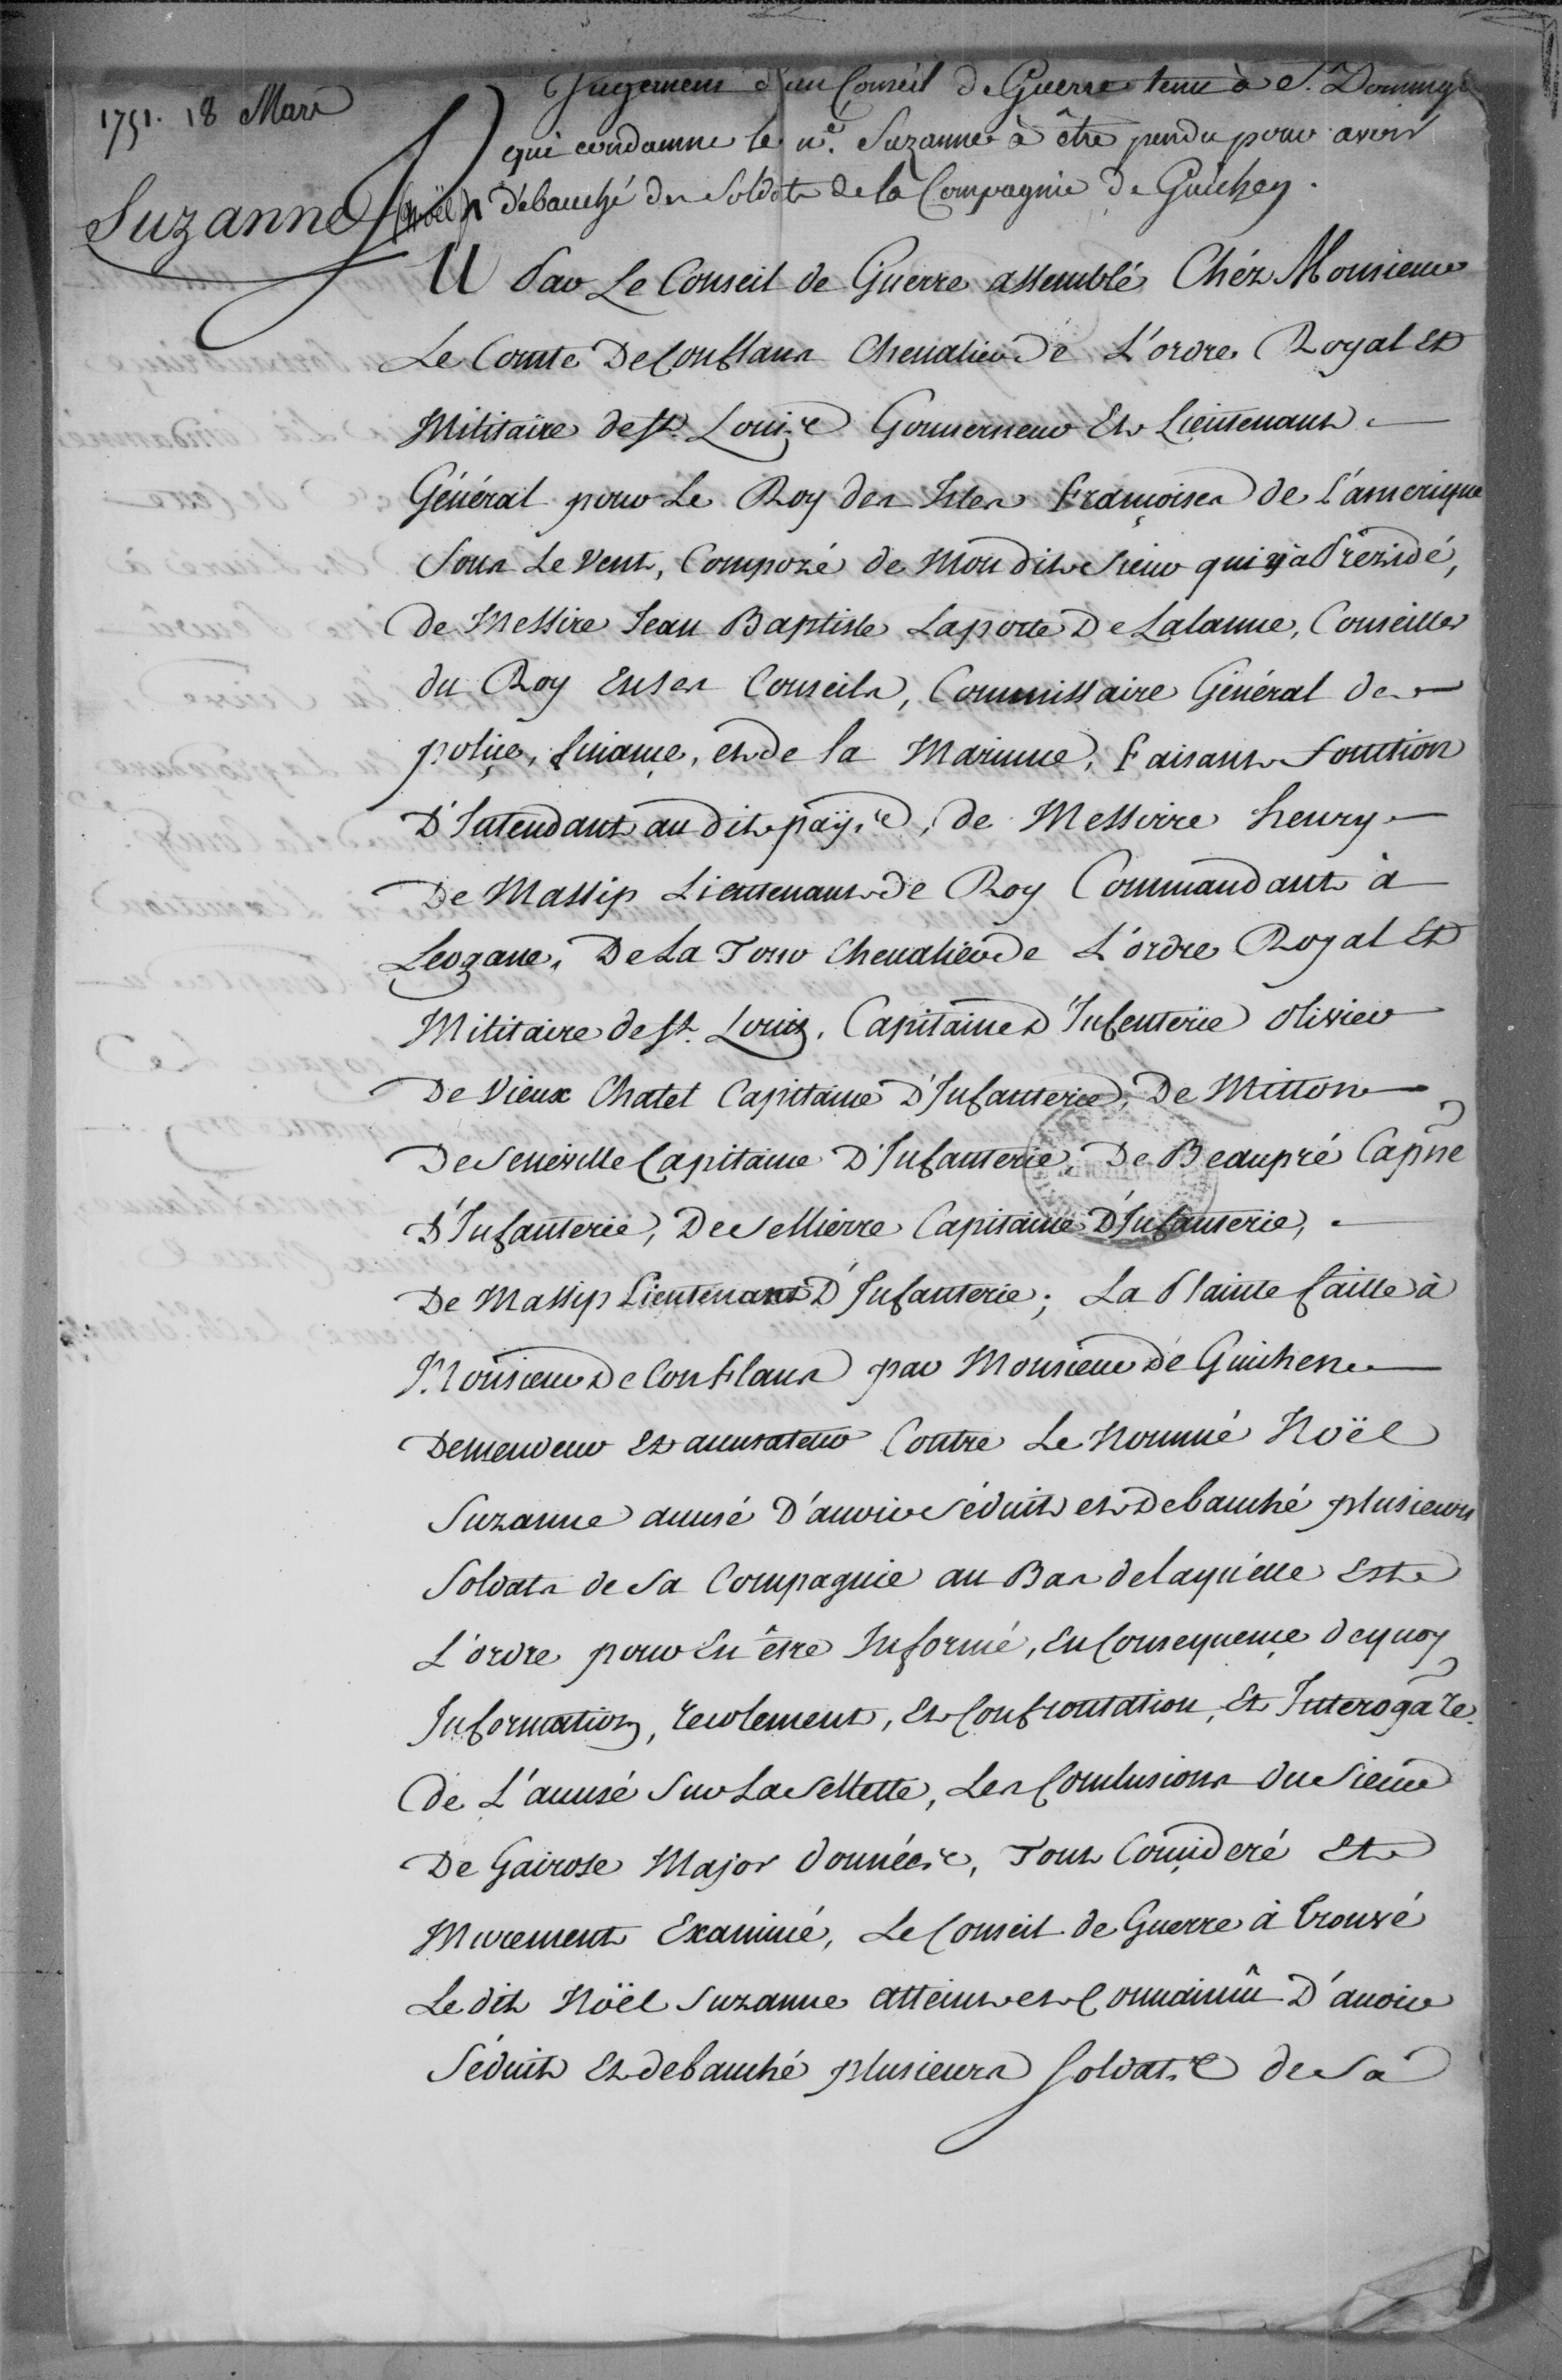 Jugement d'un Conseil de Guerre tenu à St. Domingue
1751. 18 Mars
qui condamne le né. Suzanne à être pendu pour avoir
Suzanne (Noël) débauché des Soldats de la Compagnie de Guichen.
Vu Par Le Conseil de Guerre assemblé Chéz Monsieur
Le Comte De Conflans Chevalier de L'ordre Royal Et
Militaire de St. Louis Gouverneur Et Lieutenant
Général pour Le Roy des Isles françoises de L'amerique
Sous Le Vent, Composé de Mondit Sieur qui y a Présidé,
de Messire Jean Baptiste Laporte De Lalanne, Conseiller
du Roy En Ses Conseils, Commissaire Général de
police, finance, et de la Marinne, faisant fonction
D'Intendant au dit païs, de Messirre henry
De Massip Lieutenant de Roy Commandant à
Leogane, De La Tour Chevalier de L'ordre Royal Et
Militaire de St. Louis, Capitaine D'Infenterie Olivier
De Vieux Chatel Capitaine D'Infanterie, De Mitton
De Seneville Capitaine D'Infanterie, De Beaupré Capne
D'Infanterie, De Sellierre Capitaine D'Infanterie,
De Massip Lieutenant D'Infanterie; La Plainte faitte à
Monsieur De Conflans par Monsieur de Guichen
Demendeur Et accusateur Contre Le Nommé Noël
Suzanne accusé D'avoir Séduit et Debauché plusieurs
Soldats de Sa Compagnie au Bas de laquelle Est
L'ordre pour En être Informé, En Consequence dequoy
Information, recolement, Et Confrontation, Et Interogare.
de L'accusé Sur La Sellette, Les Conclusions du Sieur
De Gairose Major données, Tout Consideré Et
Murement Examiné, Le Conseil de Guerre à trouvé
Le dit Noël Suzanne atteint et Convaincû D'avoir
Séduit Et debauché plusieurs Soldats de Sa